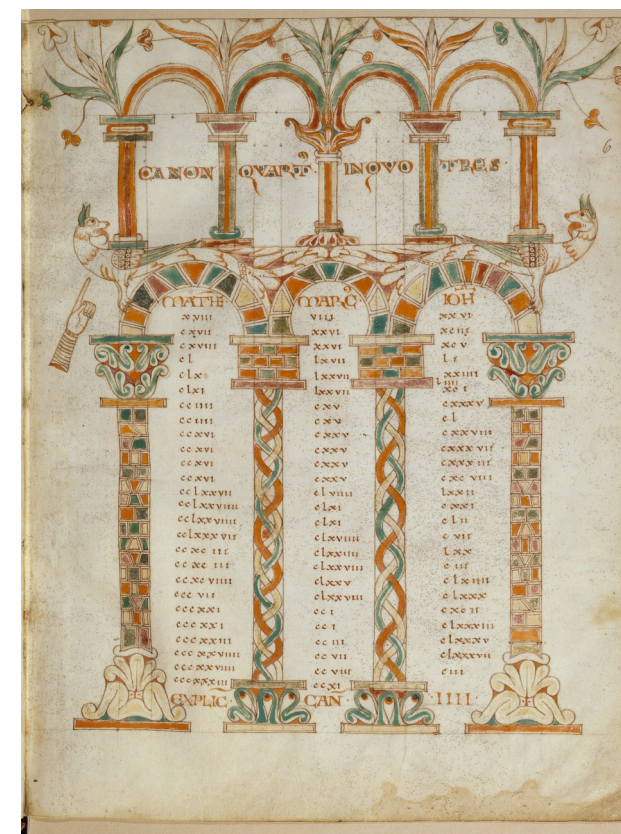 6
CANON QVART INQVO TRES
MATH MARC IOH
xviii viii xxvi
cxvii xxvi
cxviii xxvi xcv
cl lxvii li
clxi lxxvii xxiii
clxi lxxvii
cciiii cxv cxxxv
cciiii cxv cl
ccxvi cxxv cxxviii
ccxvi cxxv cxxxvii
ccxvi cxxv cxxxiii
ccxvi cxxv
cclxxvii clviiii lxxii
cclxxviiii clxi cxxi
cclxxviiii clxi clii
cclxxxvii clxviiii cvii
ccxciii clxxiiii lxx
ccxciii clxxviii ciii
ccxcviiii clxxv clxiiii
cccvii clxxviii clxxx
cccxxi cci cxcii
cccxxi cci clxxxiii
cccxxiii cciii clxxxv
ccvii clxxxvii
cccxxviii ccviii ciii
cccxxxiii ccxi
EXPLIC CAN IIII